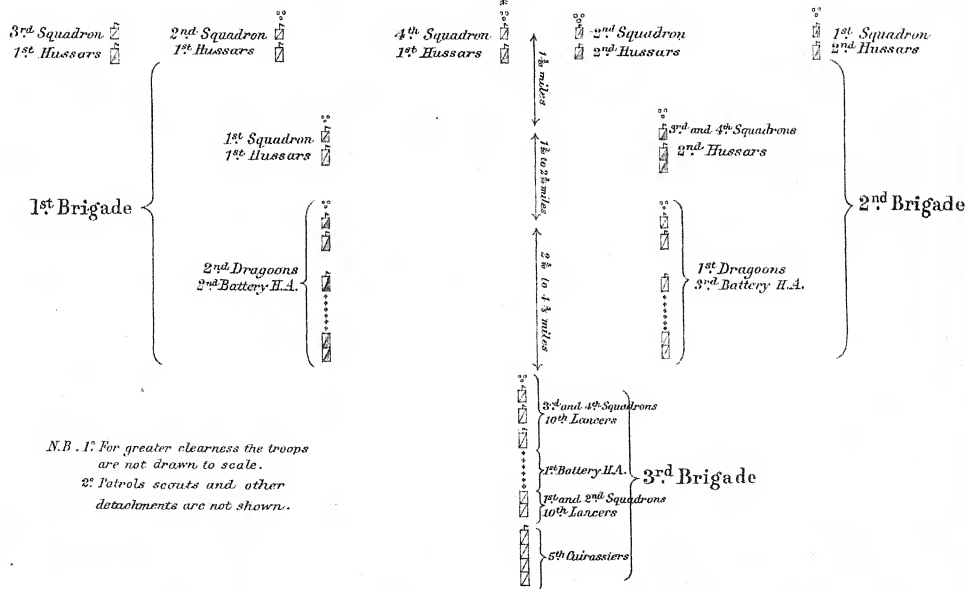 3rd Squadron
1st Hussars
2nd Squadron
1st Hussars
4th Squadron
1st Hussars
2nd Squadron
2nd Hussars
1st Squadron
2nd Hussars
1st Squadron
1st Hussars
3rd and 4th Squadrons
2nd Hussars
1st Brigade
2nd Brigade
2nd Dragoons
2nd Battery H.A.
1st Dragoons
3rd Battery H.A.
miles
miles
miles
3rd and 4th Squadrons
10th Lancers
1st Battery H.A.
3rd Brigade
1st and 2nd Squadrons
10th Lancers
5th Cuirassiers
N.B. 1º. For greater clearness the troops
are not drawn to scale.
2º. Patrols scouts and other
detachments are not shown.